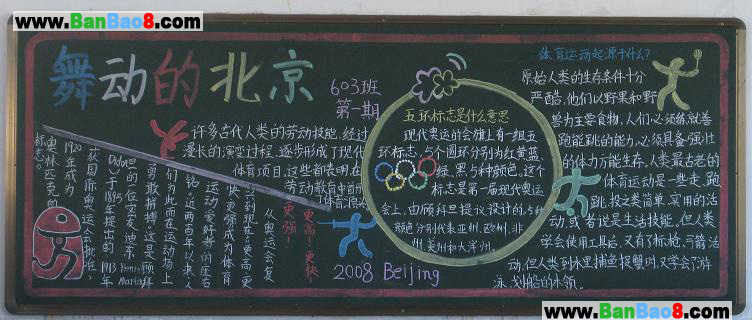 www.BanBao8.com
舞动的北京
603班
第一期
许多古代人类的劳动技能,经过
漫长的演变过程,逐步形成了现代
体育项目,这些首先在
劳动教育中
五环标志是什么意思
现代奥运的会旗上有一组五
环标志,5个圆环分别为红黄蓝
绿、黑,5种颜色,这个
标志是第一届现代奥运
会上,由顾拜旦提议设计的,5种
颜色分别代表亚洲、欧洲、非
洲、美洲和大洋洲。
体育运动起源于什么?
原始人类的生存条件十分
严酷,他们以野果和野
兽为主要食物,人们必须练就善
跑能跳的能力,必须具备强壮
的体力方能生存,人类最古老的
体育运动是一些走、跑
跳、投之类简单、实用的活
动,或者说是生活技能,但人类
学会使用工具后,又有了标枪、弓箭活
动,但人类到水里捕鱼捉蟹时,又学会了游
泳、划船的本领。
从奥运会复
更高!更快!
更强!
快更强成为体育
运动爱好者的座右
铭,近两百年以来人
们为此而在运动场上
勇敢拼搏。这是顾拜
旦的一位至友迪东
于1895年提出的,1913年
获国际奥运会批准,
1920年成为
奥林匹克的
标志。
2008 Beijing
www.BanBao8.com